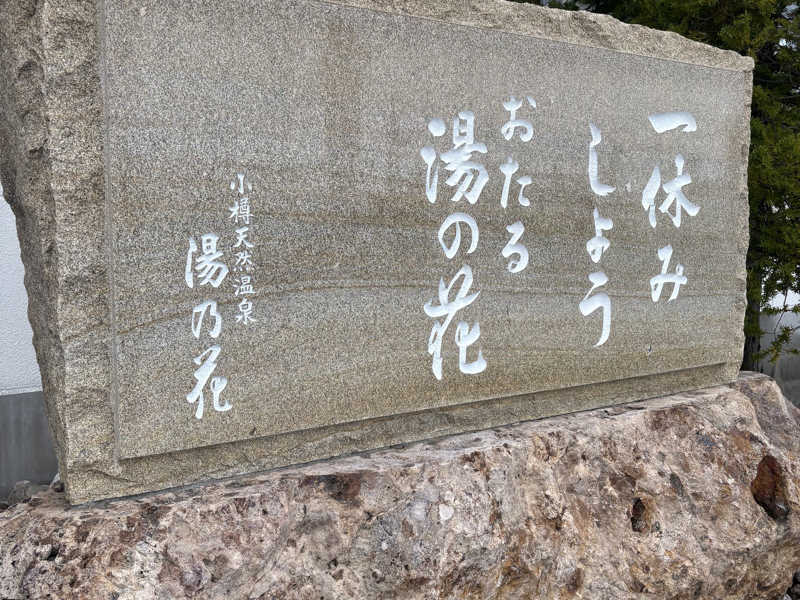 一休み
しよう
おたる
湯の花
小樽天然温泉
湯乃花